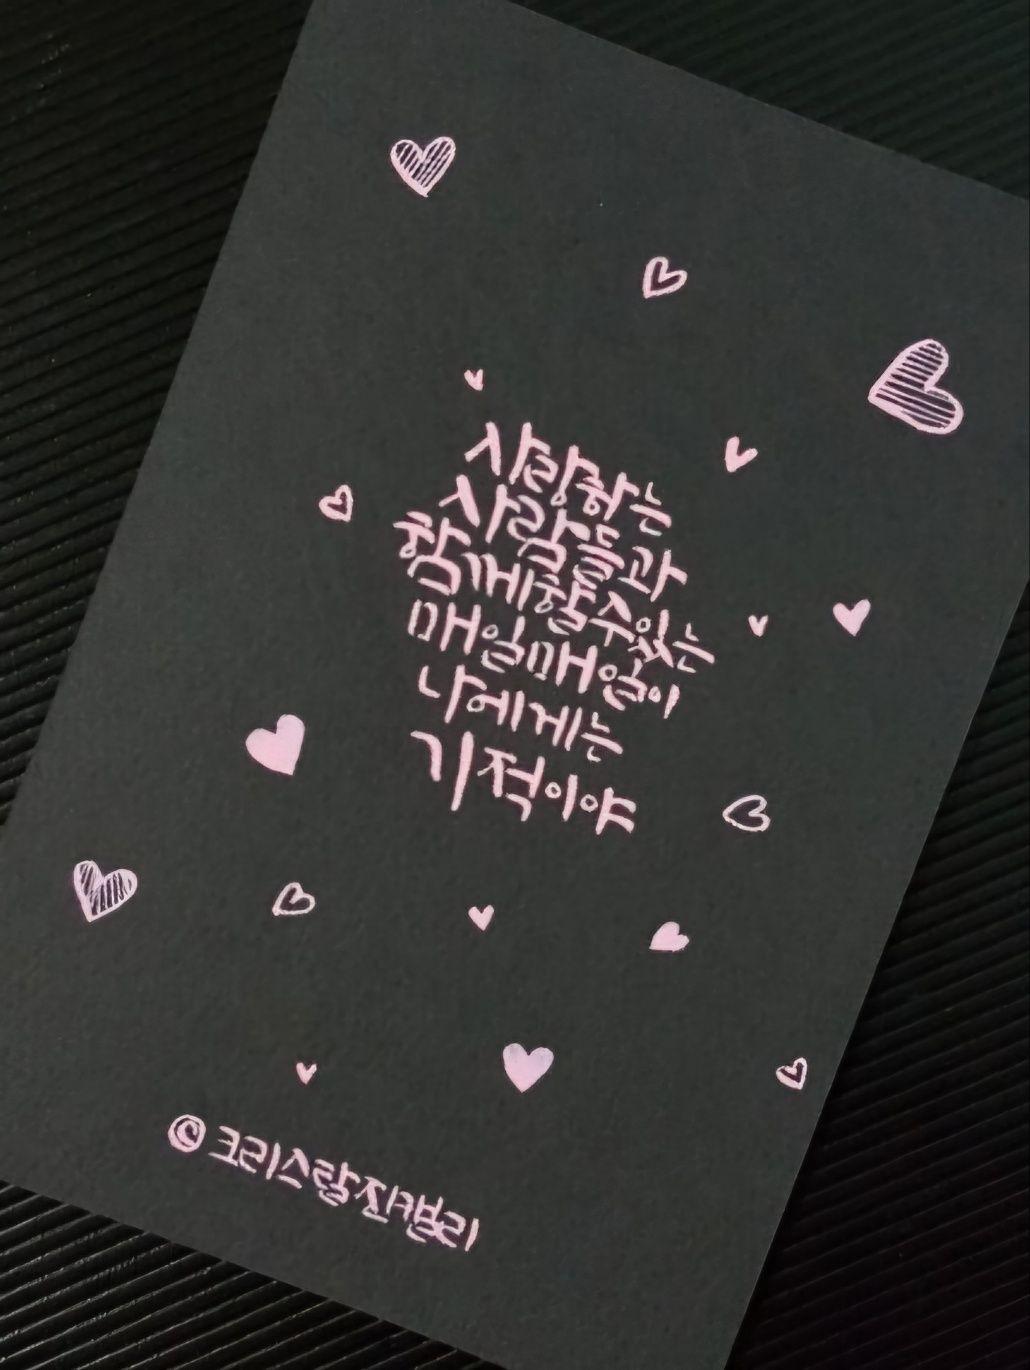 사랑하는
사람들과
함께할수있는
매일매일이
나에게는
기적이야
© 크리스탈진캘리